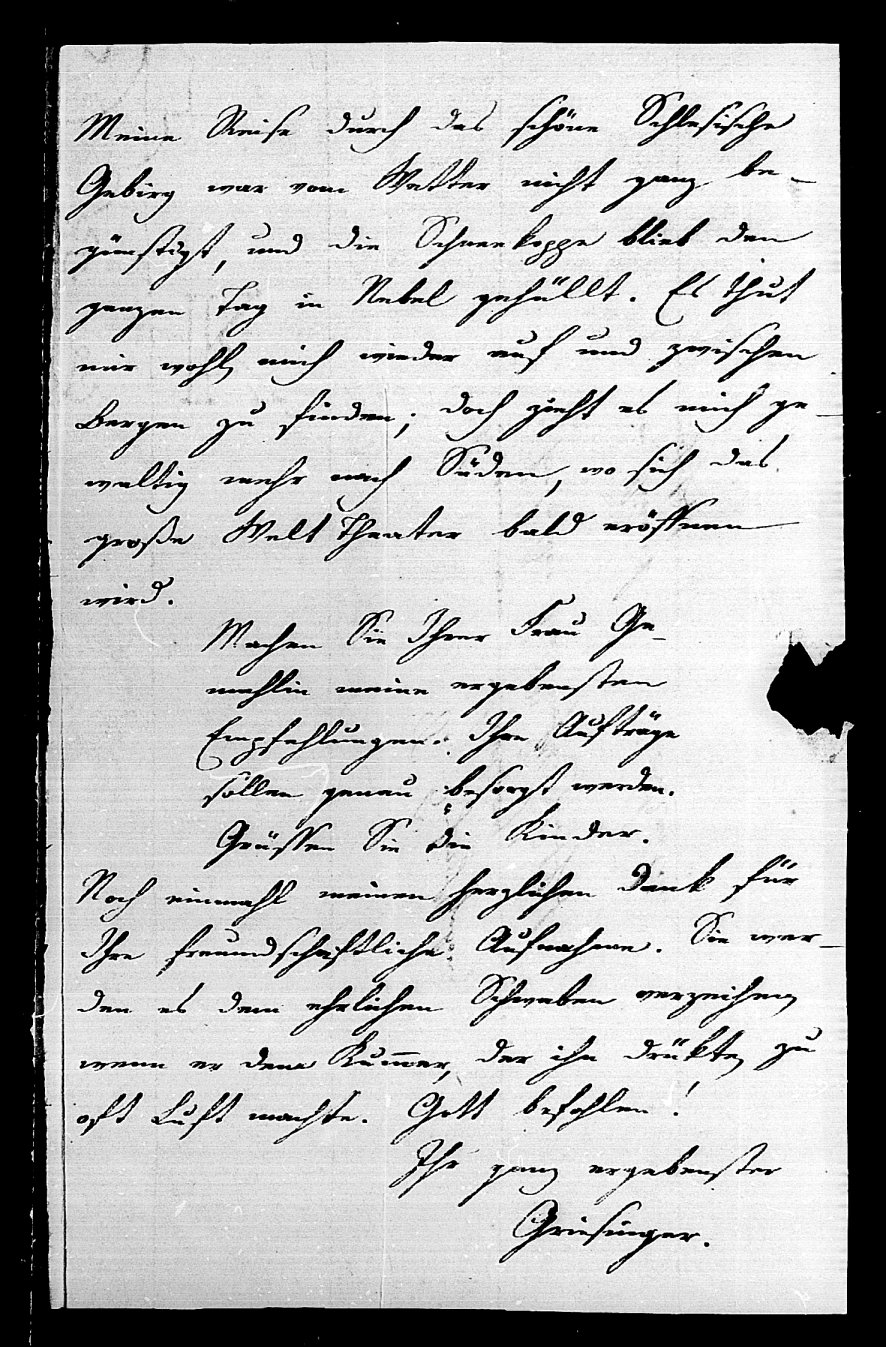 Meine Reise durch das schöne Schlesische
Gebirg war vom Wetter nicht ganz be-
günstigt, und die Schneekoppe blieb den
ganzen Tag in Nebel gehüllt. Es thut
mir wohl, mich wieder auf und zwischen
Bergen zu finden; doch zieht es mich ge-
waltig mehr nach Süden, wo sich das
große Welt Theater bald eröffnen
wird.
Machen Sie Ihrer Frau Ge-
mahlin meine ergebensten
Empfehlungen. Ihre Aufträge
sollen genau besorgt werden.
Grüssen Sie die Kinder.
Noch einmahl meinen herzlichen Dank für
Ihre freundschaftliche Aufnahme. Sie wer-
den es dem ehrlichen Schwaben verzeihen,
wenn er dem Kum̅er, der ihn drükte, zu
oft Luft machte. Gott befohlen!
Ihr ganz ergebenster
Griesinger.